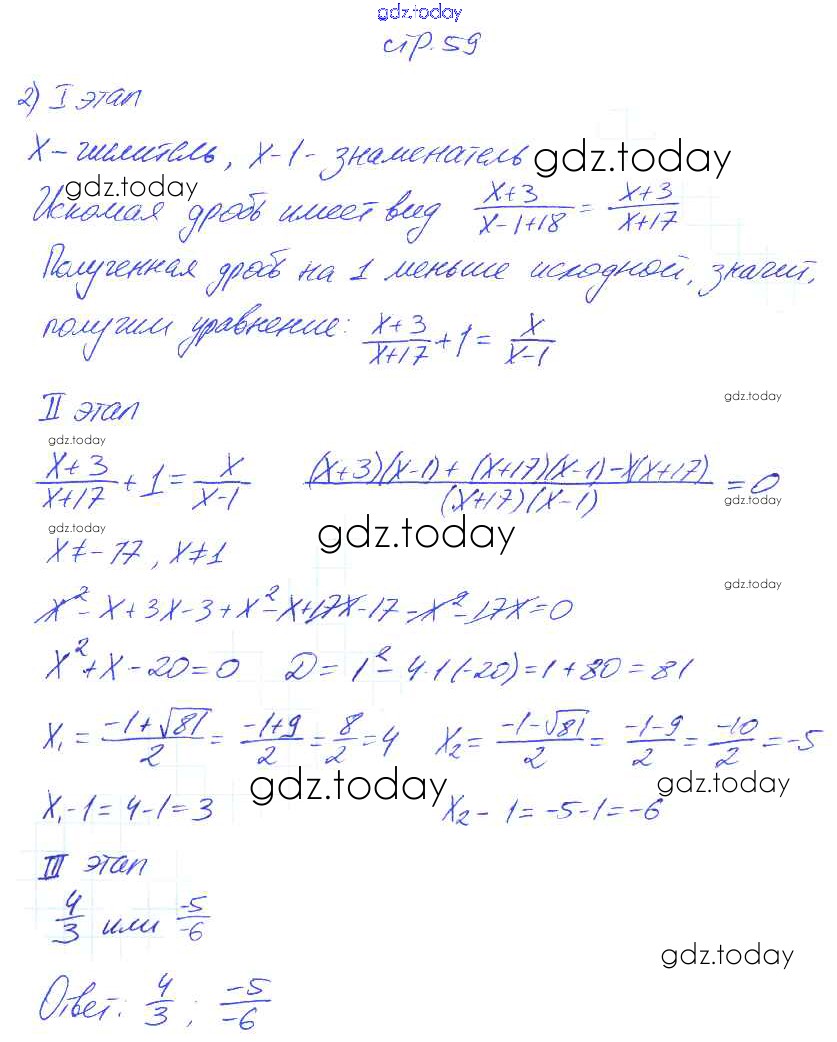 gdz.today
стр. 59
2) I этап
X - числитель, X-1 - знаменатель gdz.today
gdz.today
Искомая дробь имеет вид (X+3)/(X-1+18) = (X+3)/(X+17)
Полученная дробь на 1 меньше исходной, значит,
получим уравнение: (X+3)/(X+17) + 1 = X/(X-1)
II этап gdz.today
gdz.today
(X+3)/(X+17) + 1 = X/(X-1) ((X+3)(X-1) + (X+17)(X-1) - X(X+17))/((X+17)(X-1)) = 0
gdz.today
gdz.today gdz.today
X ≠ -17, X ≠ 1
gdz.today
X² - X + 3X - 3 + X² - X + 17X - 17 - X² - 17X = 0
X² + X - 20 = 0 D = 1² - 4·1(-20) = 1 + 80 = 81
X₁ = (-1+√81)/2 = (-1+9)/2 = 8/2 = 4 X₂ = (-1-√81)/2 = (-1-9)/2 = -10/2 = -5
gdz.today gdz.today
X₁ - 1 = 4 - 1 = 3 X₂ - 1 = -5 - 1 = -6
III этап
4/3 или -5/-6
gdz.today
Ответ: 4/3 ; -5/-6